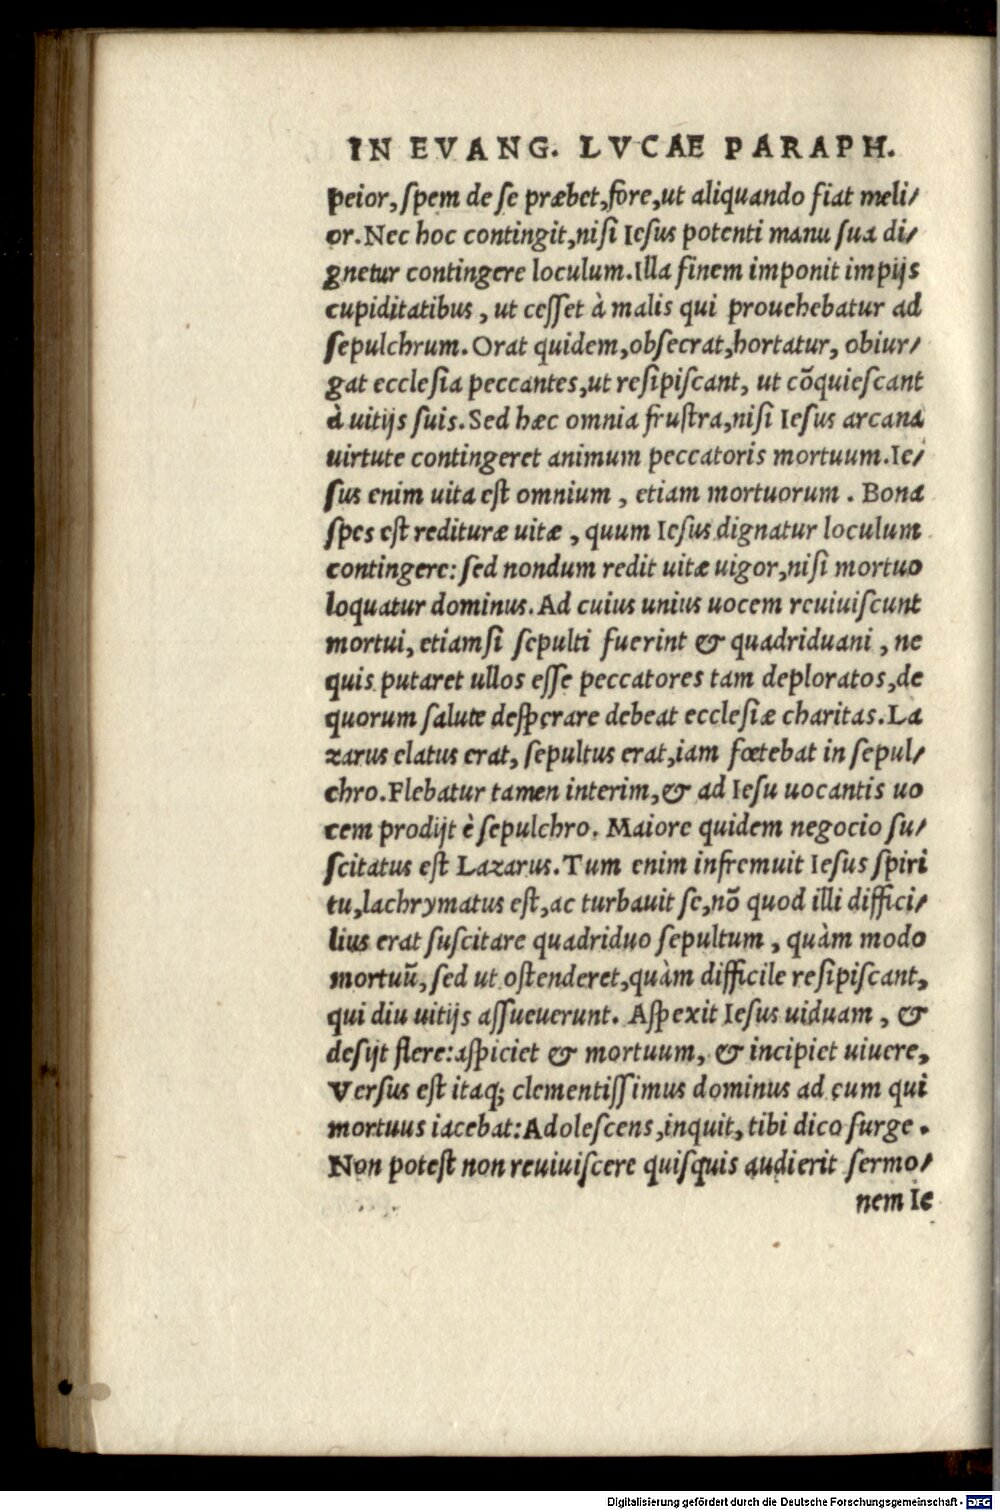 IN EVANG. LVCAE PARAPH.
peior, spem de se præbet, fore, ut aliquando fiat meli/
or. Nec hoc contingit, nisi Iesus potenti manu sua di/
gnetur contingere loculum. Illa finem imponit impijs
cupiditatibus, ut cesset à malis qui prouehebatur ad
sepulchrum. Orat quidem, obsecrat, hortatur, obiur/
gat ecclesia peccantes, ut resipiscant, ut cõquiescant
à uitijs suis. Sed hæc omnia frustra, nisi Iesus arcana
uirtute contingeret animum peccatoris mortuum. Ie/
sus enim uita est omnium, etiam mortuorum. Bona
spes est redituræ uitæ, quum Iesus dignatur loculum
contingere: sed nondum redit uitæ uigor, nisi mortuo
loquatur dominus. Ad cuius unius uocem reuiuiscunt
mortui, etiamsi sepulti fuerint & quadriduani, ne
quis putaret ullos esse peccatores tam deploratos, de
quorum salute desperare debeat ecclesiæ charitas. La
zarus elatus erat, sepultus erat, iam fœtebat in sepul/
chro. Flebatur tamen interim, & ad Iesu uocantis uo
cem prodijt è sepulchro. Maiore quidem negocio su/
scitatus est Lazarus. Tum enim infremuit Iesus spiri
tu, lachrymatus est, ac turbauit se, nõ quod illi diffici/
lius erat suscitare quadriduo sepultum, quàm modo
mortuũ, sed ut ostenderet, quàm difficile resipiscant,
qui diu uitijs assueuerunt. Aspexit Iesus uiduam, &
desijt flere: aspiciet & mortuum, & incipiet uiuere,
Versus est itaq; clementissimus dominus ad eum qui
mortuus iacebat: Adolescens, inquit, tibi dico surge.
Non potest non reuiuiscere quisquis audierit sermo/
nem Ie
Digitalisierung gefördert durch die Deutsche Forschungsgemeinschaft - DFG